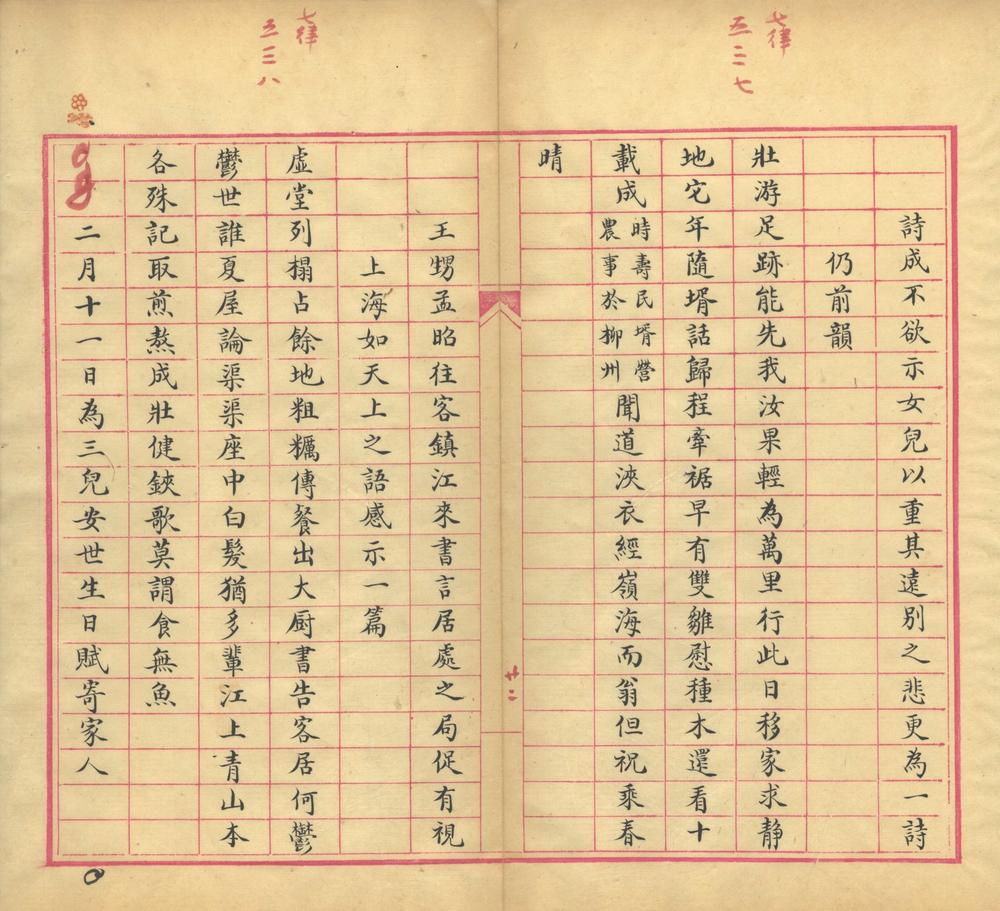 七律
五二七
詩成不欲示女兒以重其遠別之悲更為一詩
仍前韻
壯游足跡能先我汝果輕為萬里行此日移家求靜
地它年隨壻話歸程牽裾早有雙雛慰種木還看十
載成時壽民壻營農事於柳州聞道浹衣經嶺海而翁但祝乘春
晴
廿二
七律
五三八
王甥孟昭往客鎮江來書言居處之局促有視
上海如天上之語感示一篇
虛堂列榻占餘地粗糲傳餐出大厨書告客居何鬱
鬱世誰夏屋論渠渠座中白髮猶多輩江上青山本
各殊記取煎熬成壯健鋏歌莫謂食無魚
二月十一日為三兒安世生日賦寄家人